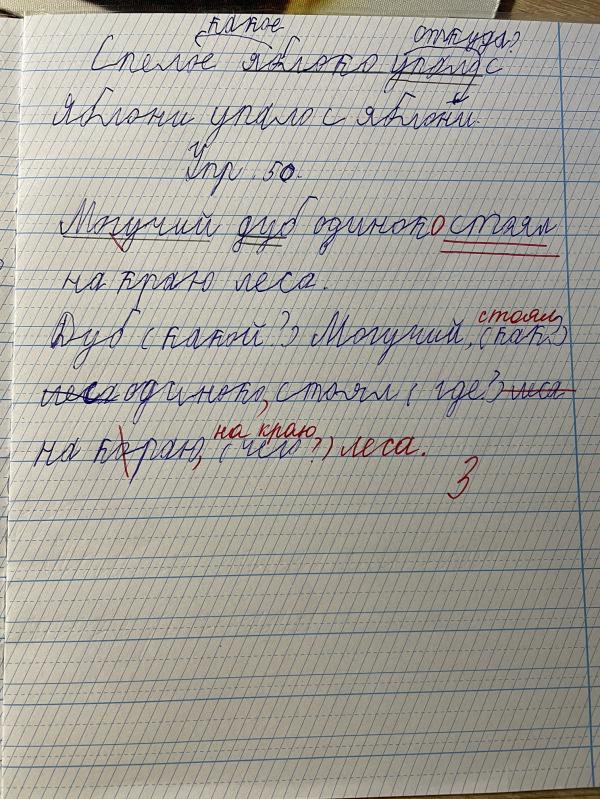 какое откуда?
Спелое яблоко упало с
яблони упало с яблони.
Упр. 50.
Могучий дуб одиноко стоял
на краю леса.
стоял
Дуб (какой?) Могучий, (как?)
леса одиноко, стоял (где?) леса
на краю
на краю, (чего?) леса.
3